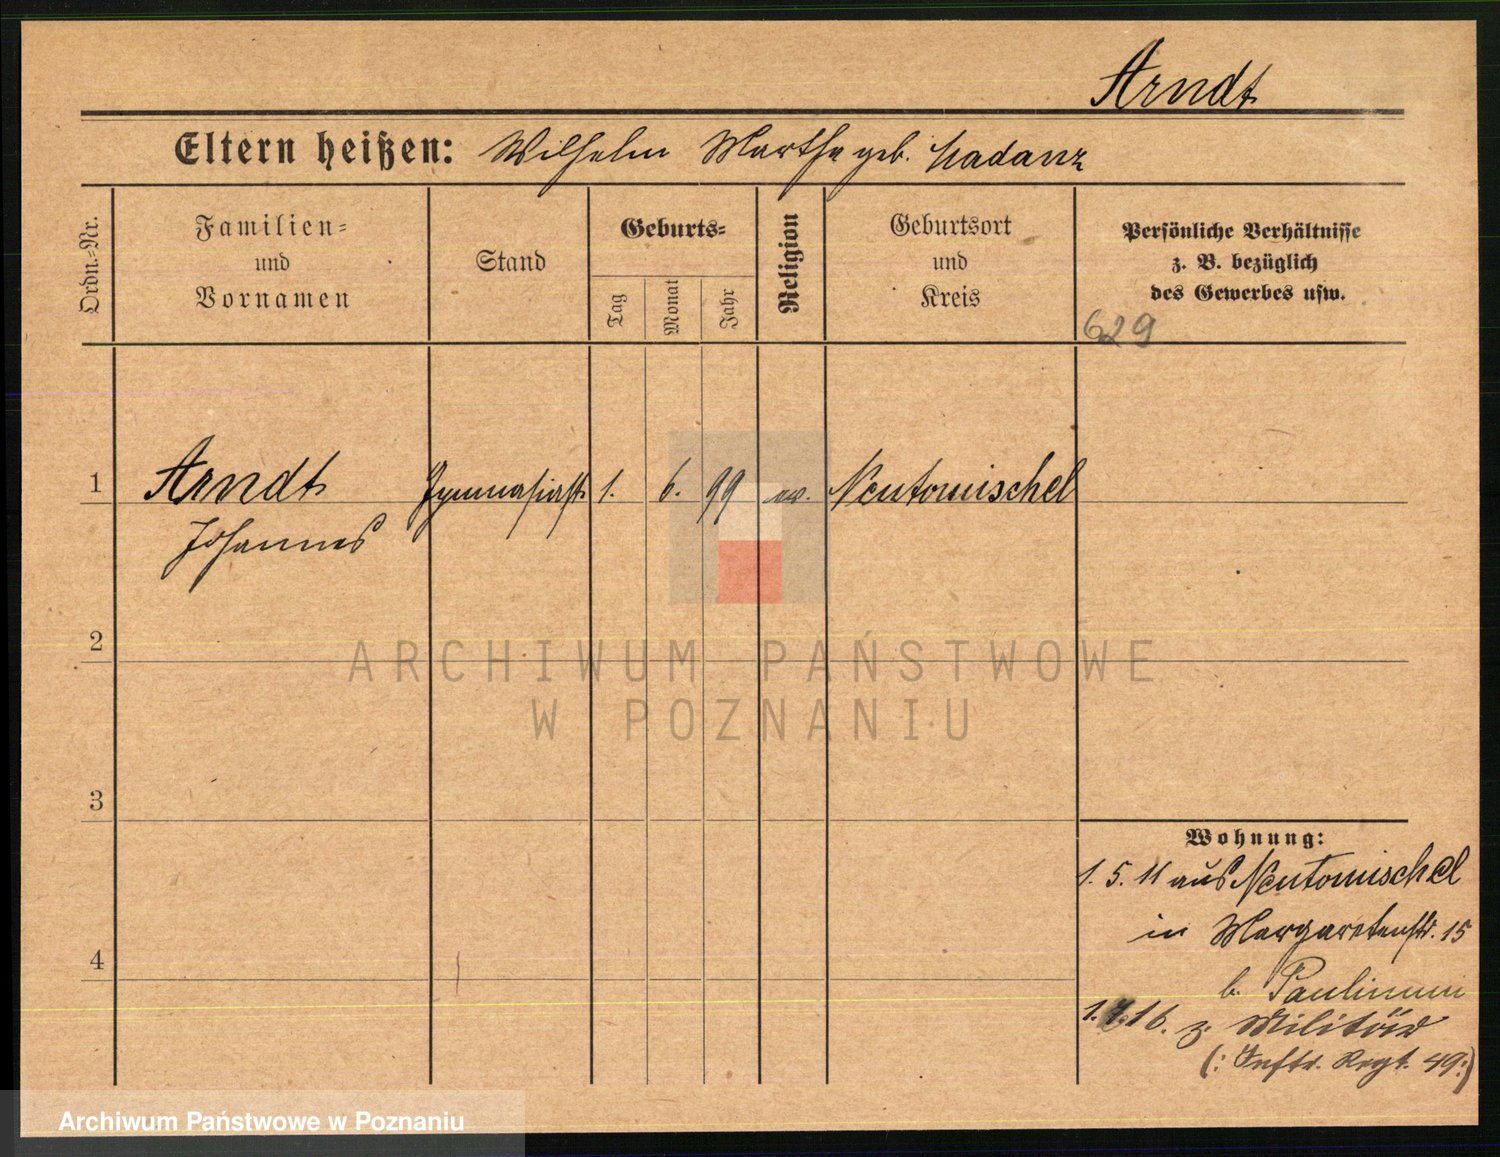 Arndt
Eltern heißen: Wilhelm Marthe geb. Nadanz
Ordn.-Nr.
Familien-
und
Vornamen
Stand
Geburts-
Tag
Monat
Jahr
Religion
Geburtsort
und
Kreis
Persönliche Verhältnisse
z. B. bezüglich
des Gewerbes usw.
629
1 Arndt Gymnasiast 1. 6. 99 ev. Neutomischel
Johannes
2
ARCHIWUM PAŃSTWOWE
W POZNANIU
3
Wohnung:
1. 5. 11 aus Neutomischel
in Margaretenstr. 15
4
b. Paulinum
1. 7. 16. z. Militär
(: Inftr. Regt. 49 :)
Archiwum Państwowe w Poznaniu